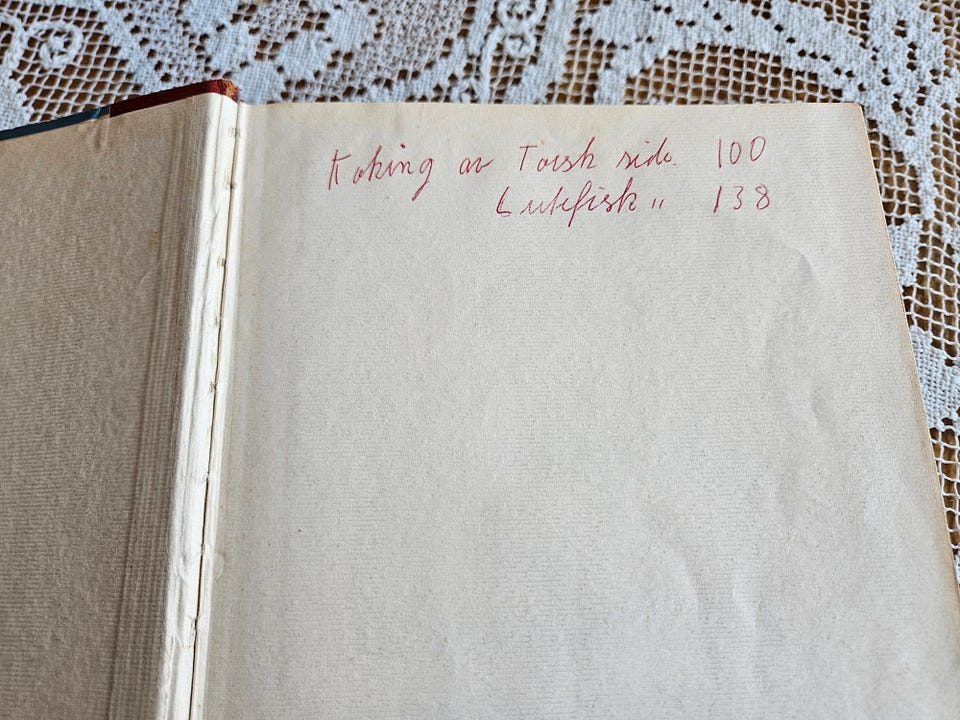 Koking av Torsk side. 100
Lutefisk " 138